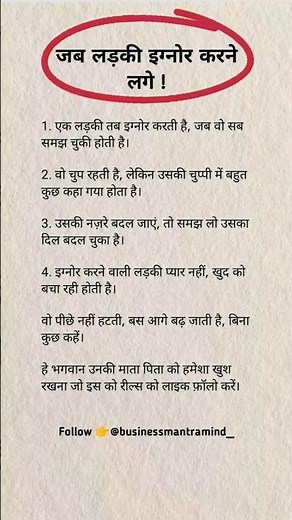 जब लड़की इग्नोर करने
लगे !
1. एक लड़की तब इग्नोर करती है, जब वो सब
समझ चुकी होती है।
2. वो चुप रहती है, लेकिन उसकी चुप्पी में बहुत
कुछ कहा गया होता है।
3. उसकी नज़रे बदल जाएं, तो समझ लो उसका
दिल बदल चुका है।
4. इग्नोर करने वाली लड़की प्यार नहीं, खुद को
बचा रही होती है।
वो पीछे नहीं हटती, बस आगे बढ़ जाती है, बिना
कुछ कहें।
हे भगवान उनकी माता पिता को हमेशा खुश
रखना जो इस को रील्स को लाइक फ़ॉलो करें।
Follow 👉@businessmantramind_